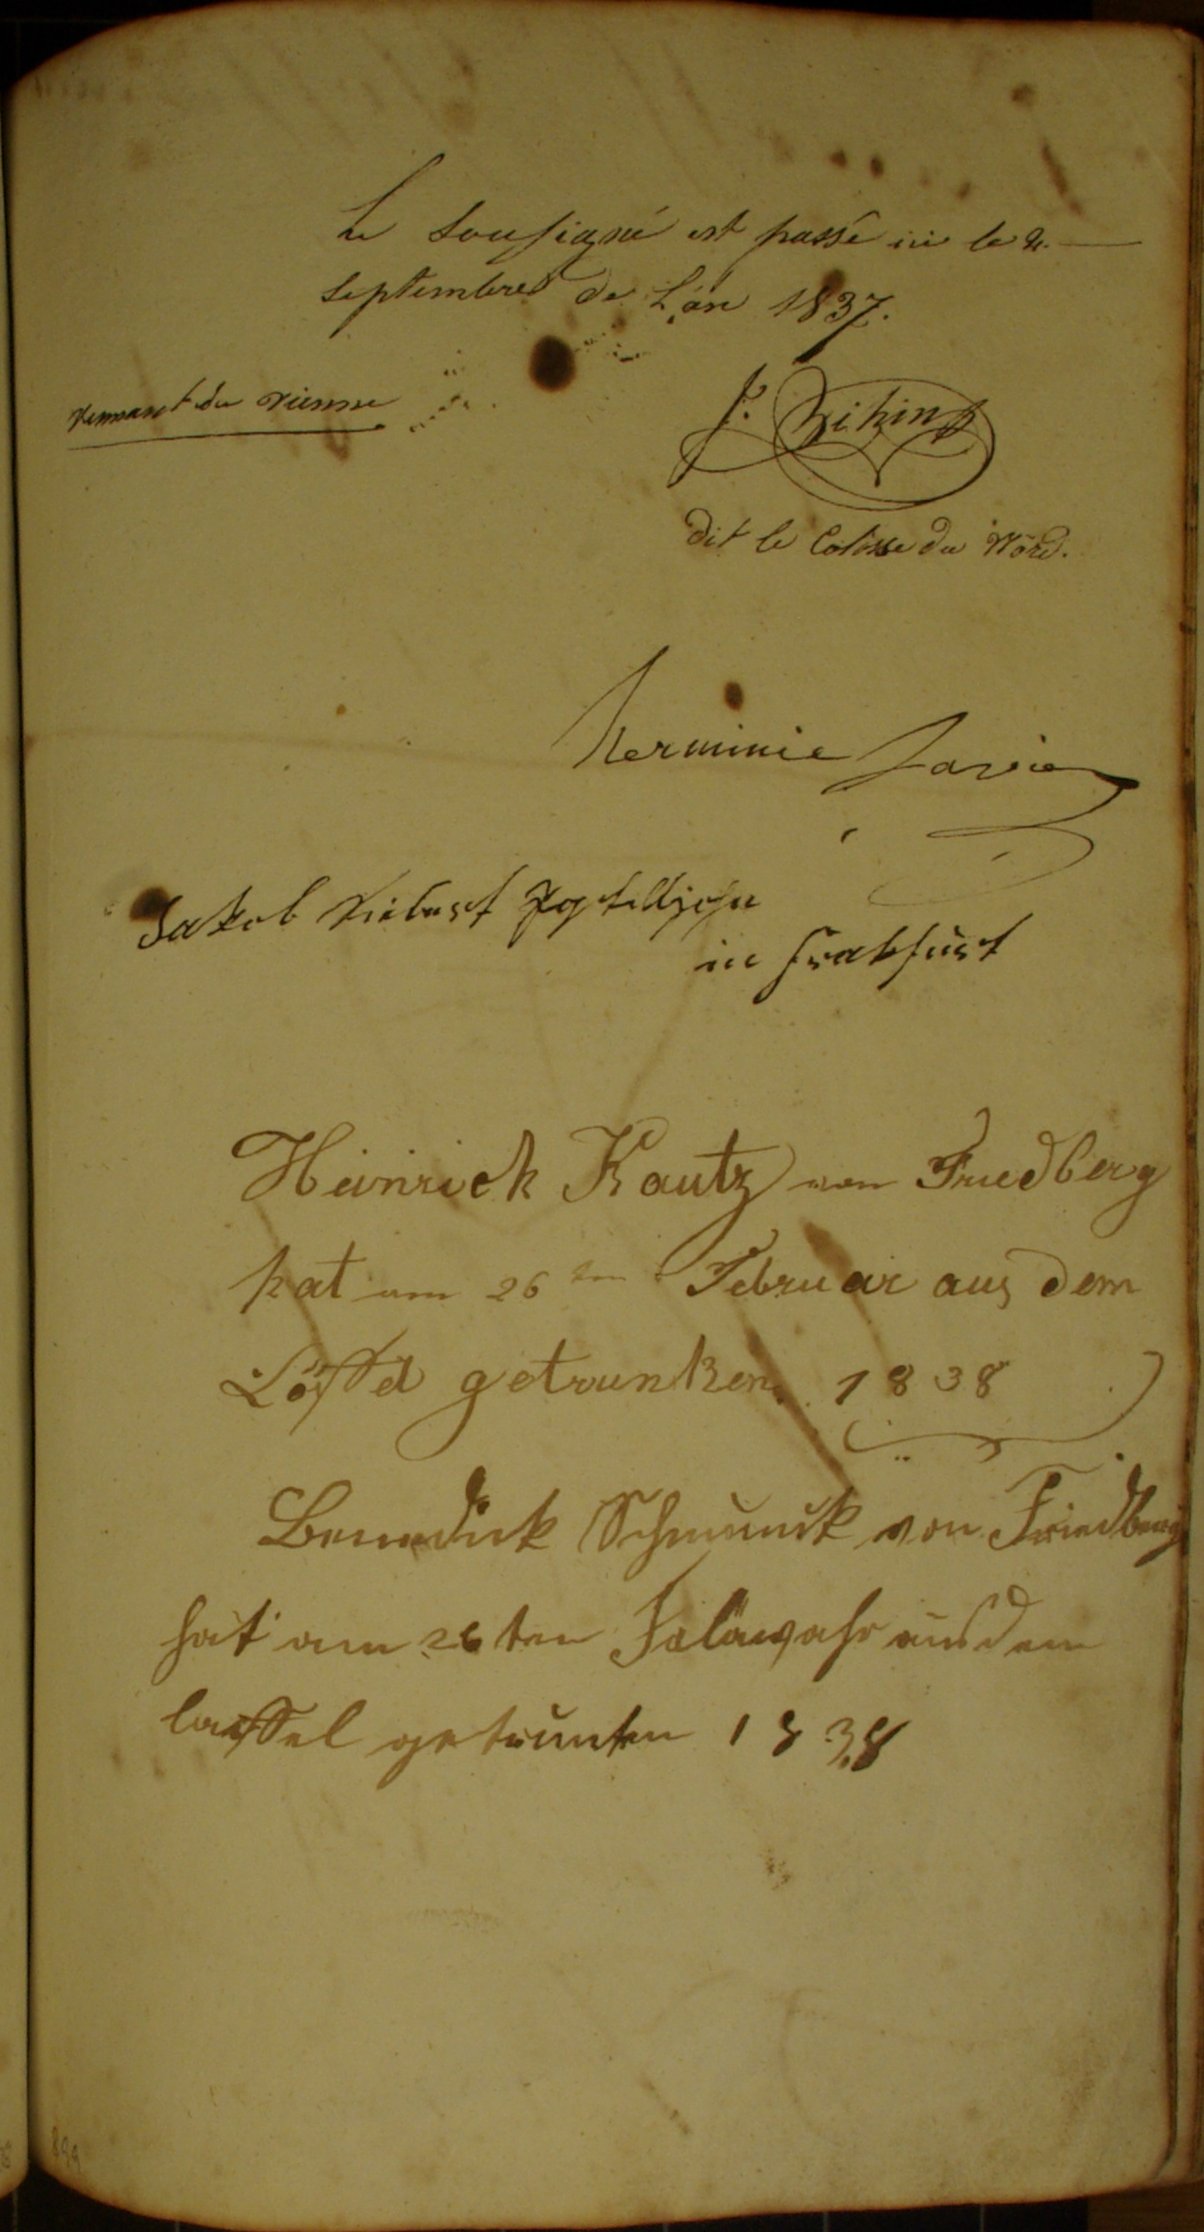 Le Sousigné est passé ici le 2.
septembre de L'an 1837.
Vennant de Vienne
J. Kihin
dit le Colosse du Nord.
Herminie Javie
Jakob
in frakfurt
Heinrich Kautz von Friedberg
hat am 26ten Februar aus dem
Löffel getrunken. 1838
Benedick Schmuck von Friedberg
hat am 26ten Felawahr aus dem
laeffel getrunken 1838
899